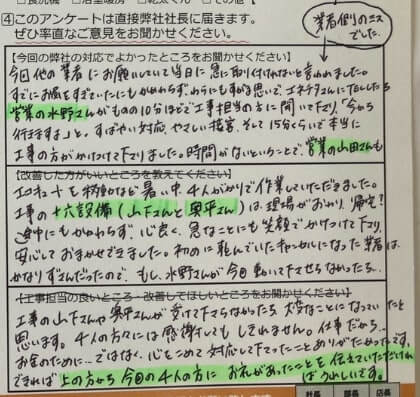 ④このアンケートは直接弊社社長に届きます。
ぜひ率直なご意見をお聞かせください。
業者側のミス
でした。
【今回の弊社の対応でよかったところをお聞かせください】
今回他の業者にお願いしていて当日に急に取り付けれないと言われました。
すでにお湯もすぎていたにもかかわらず、わらにもすがる思いで、エネテクさんにTELしたら
営業の水野さんがものの10分ほどで工事担当の方に聞いて下さり「今から
行きますよ」と。すばやい対応、やさしい接客、そして15分くらいで本当に
工事の方がかけつけて下さりました。時間がないということで、営業の山田さんも
【改善した方がいいところを教えてください】
エコキュートを移動など暑い中、4人がかりで作業していただきました。
工事の十六設備(山下さんと奥平さん)は現場がおわり、帰宅?
途中にもかかわらず、心良く、急なことにも笑顔でかけつけて下さり、
安心しておまかせできました。初めに頼んでいたキャンセルになった業者は
かなりずさんだったので、もし、水野さんが今回動いて下さらなかったら、
【工事担当の良いところ・改善してほしいところをお聞かせください】
工事の山下さんや奥平さんが受けて下さらなかったら大変なことになっていたと
思います。4人の方々には感謝してもしきれません。仕事だから…
お金のために…ではなく、心をこめて対応して下さったことありがたかったです。
できれば上の方から今回の4人の方にお礼があったことを伝えていただければ
うれしいです。
社長
部長
店長